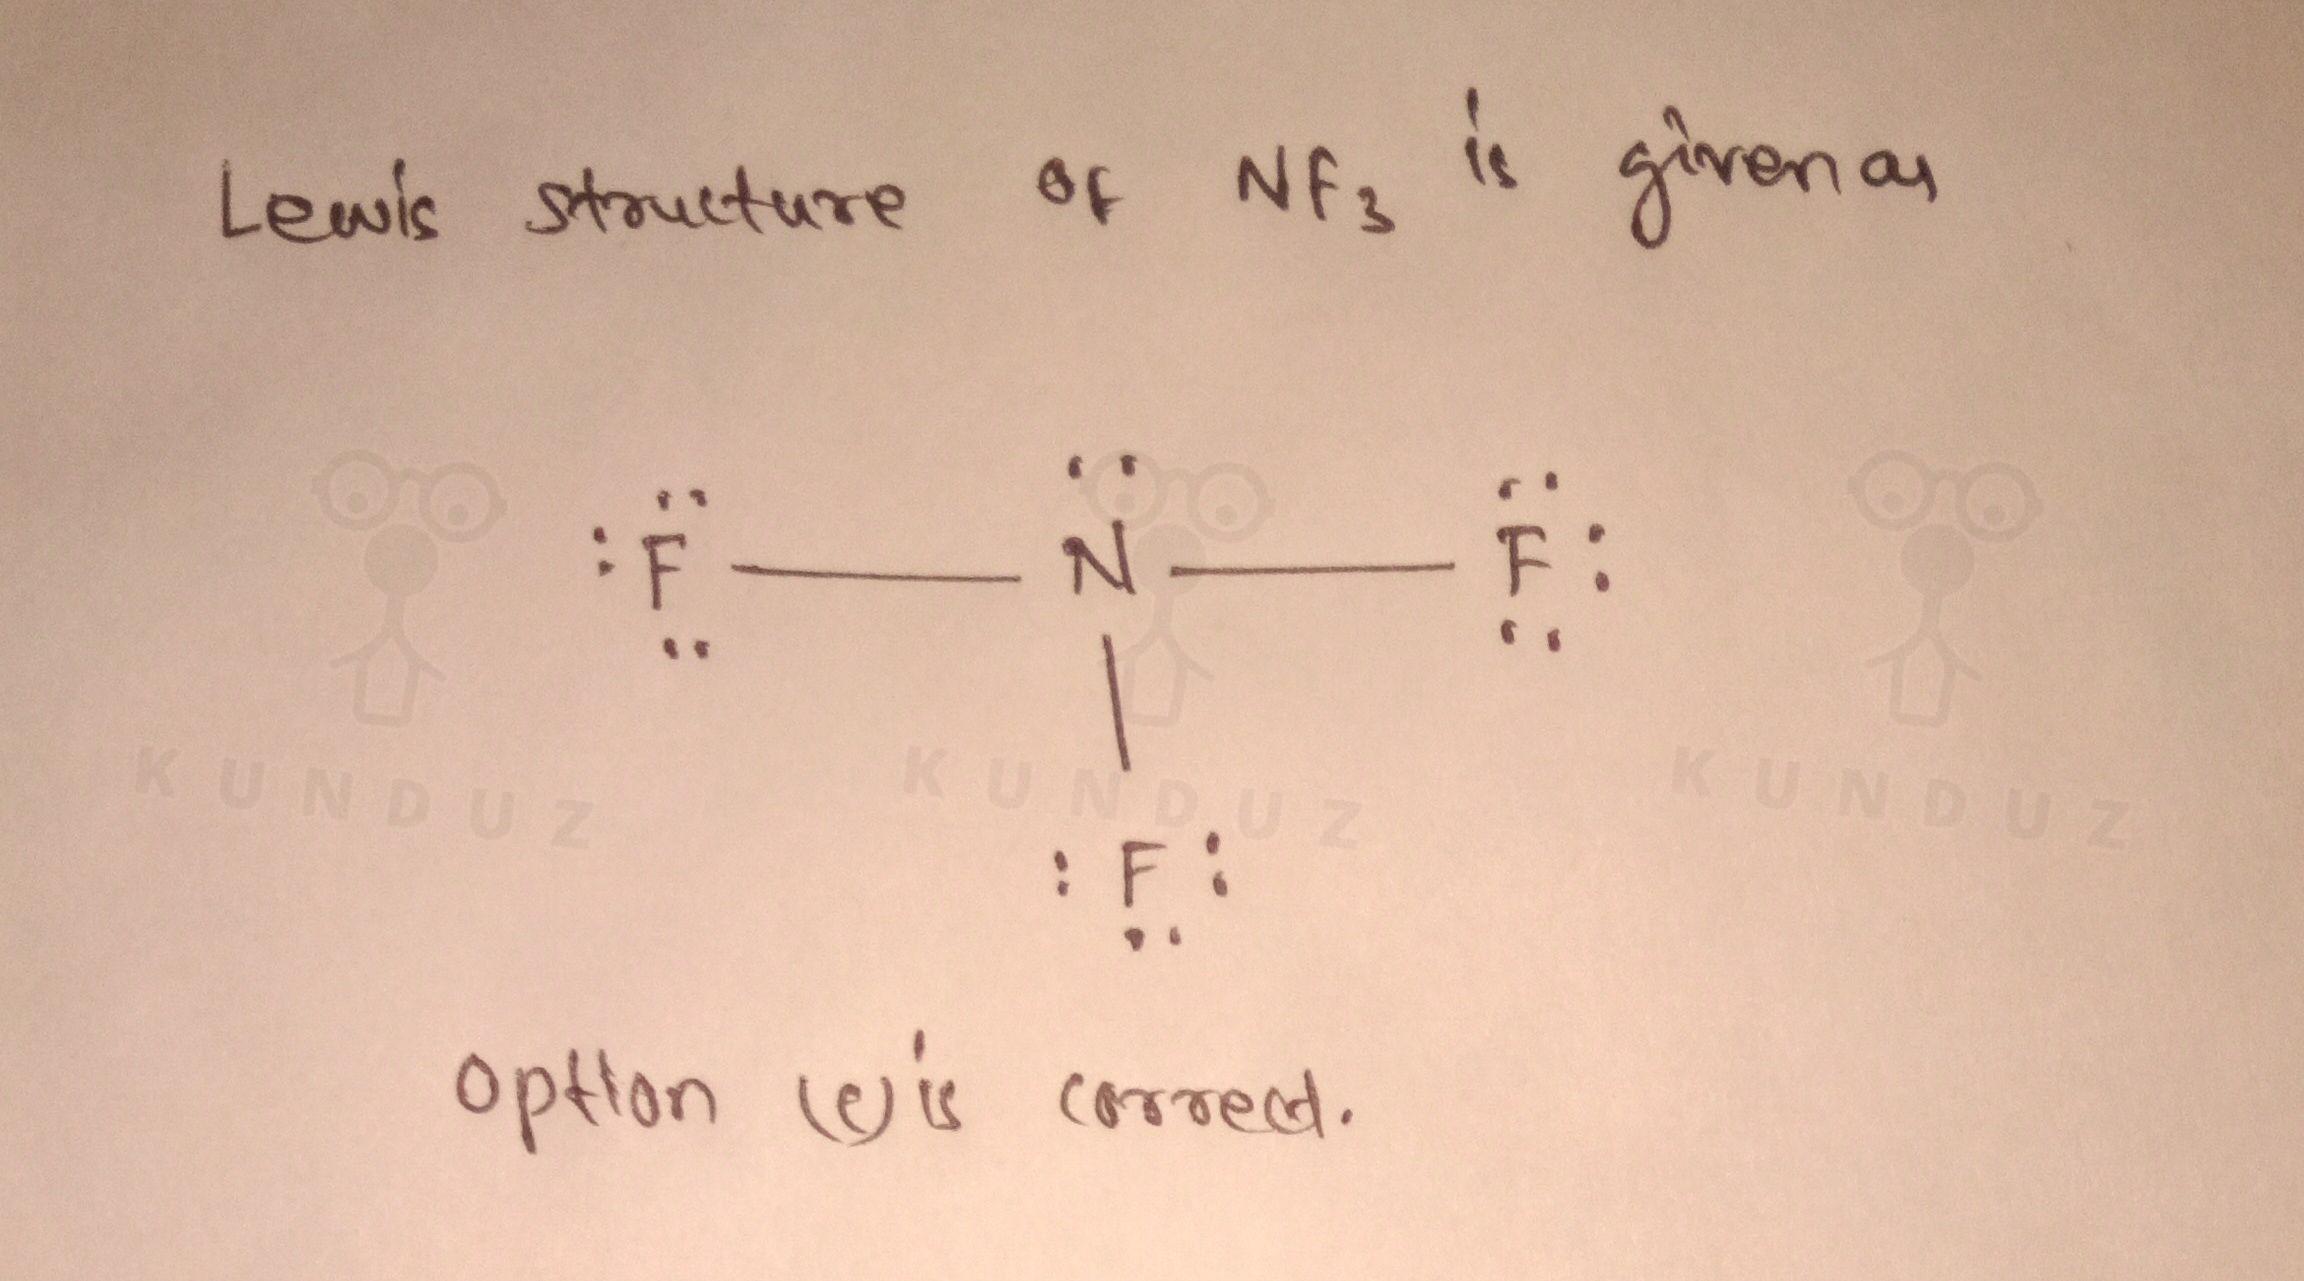 Lewis structure of NF3 is given as
:F — N — F:
:F:
Option (e) is correct.
KUNDUZ KUNDUZ KUNDUZ